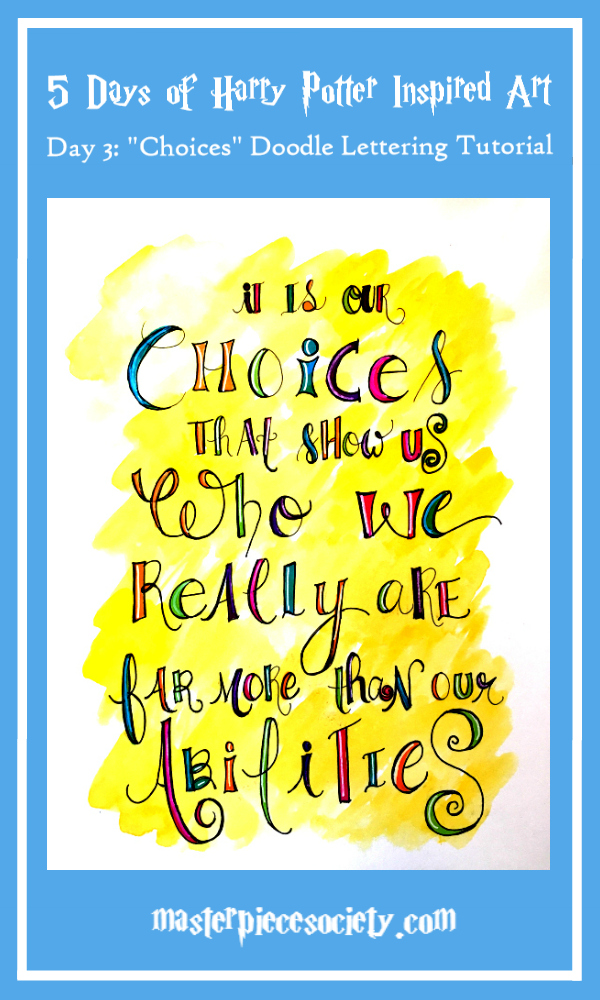 5 Days of Harry Potter Inspired Art
Day 3: "Choices" Doodle Lettering Tutorial
it is our
CHOiCeS
THAt SHOW US
WhO We
ReALly aRE
fAR MORe thaN OUr
ABiliTIeS
masterpiecesociety.com